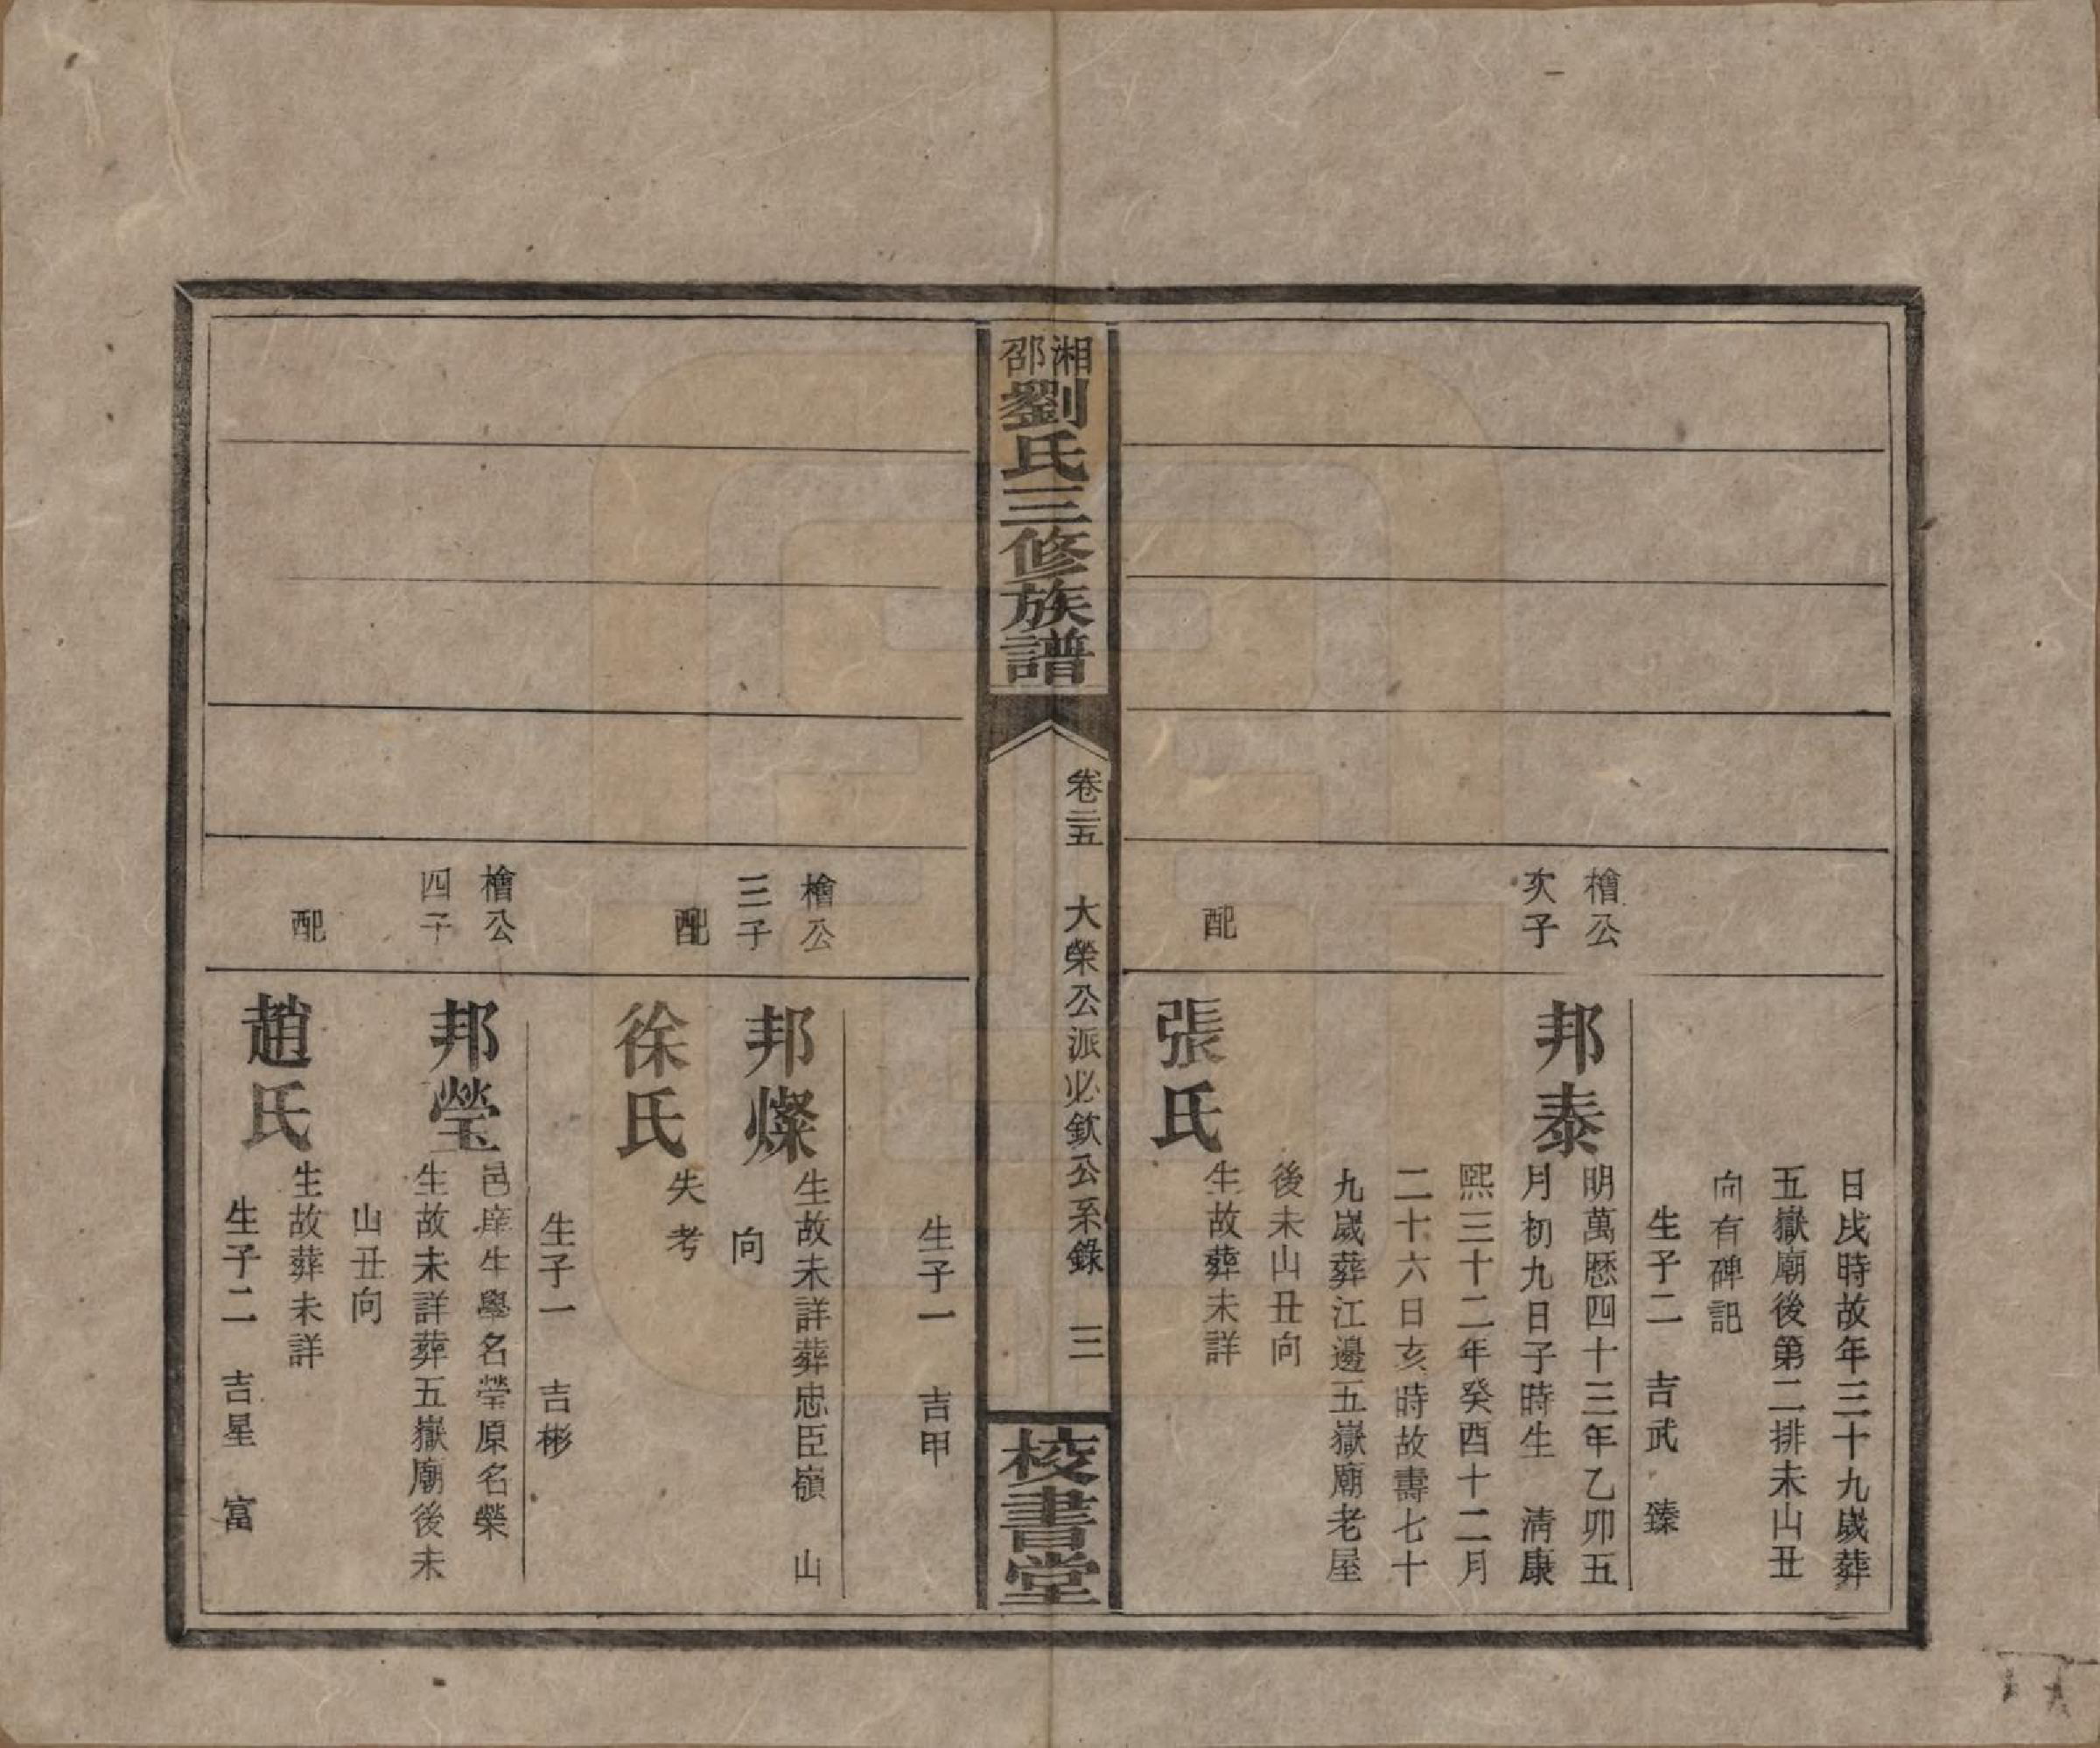 日戌時故年三十九歲葬
五嶽廟後第二排未山丑
向有碑記
生子二　吉武　臻
檜公
次子
邦泰
明萬歷四十三年乙卯五
月初九日子時生　淸康
熙三十二年癸酉十二月
二十六日亥時故壽七十
九歲葬江邊五嶽廟老屋
後未山丑向
配
張氏
生故葬未詳
湘邵劉氏三修族譜
卷二五　大榮公派必欽公系錄　三
校書堂
生子一　吉甲
檜公
三子
邦燦
生故未詳葬忠臣嶺　山
向
配
徐氏
失考
生子一　吉彬
檜公
四子
邦瑩
邑庠生學名瑩原名榮
生故未詳葬五嶽廟後未
山丑向
配
趙氏
生故葬未詳
生子二　吉星　富